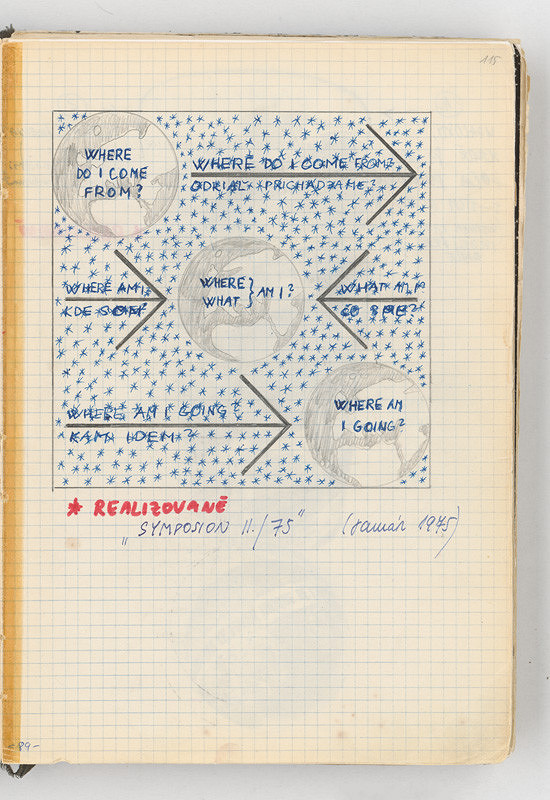 115
WHERE
DO I COME
FROM?
WHERE DO I COME FROM?
ODKIAĽ PRICHÁDZAME?
WHERE AM I
KDE SOM
WHERE
WHAT } AM I?
WHAT AM I
ČO SME?
WHERE AM I GOING?
KAM IDEM?
WHERE AM
I GOING?
* REALIZOVANÉ
"SYMPOSION II./75" (Január 1975)
-89-